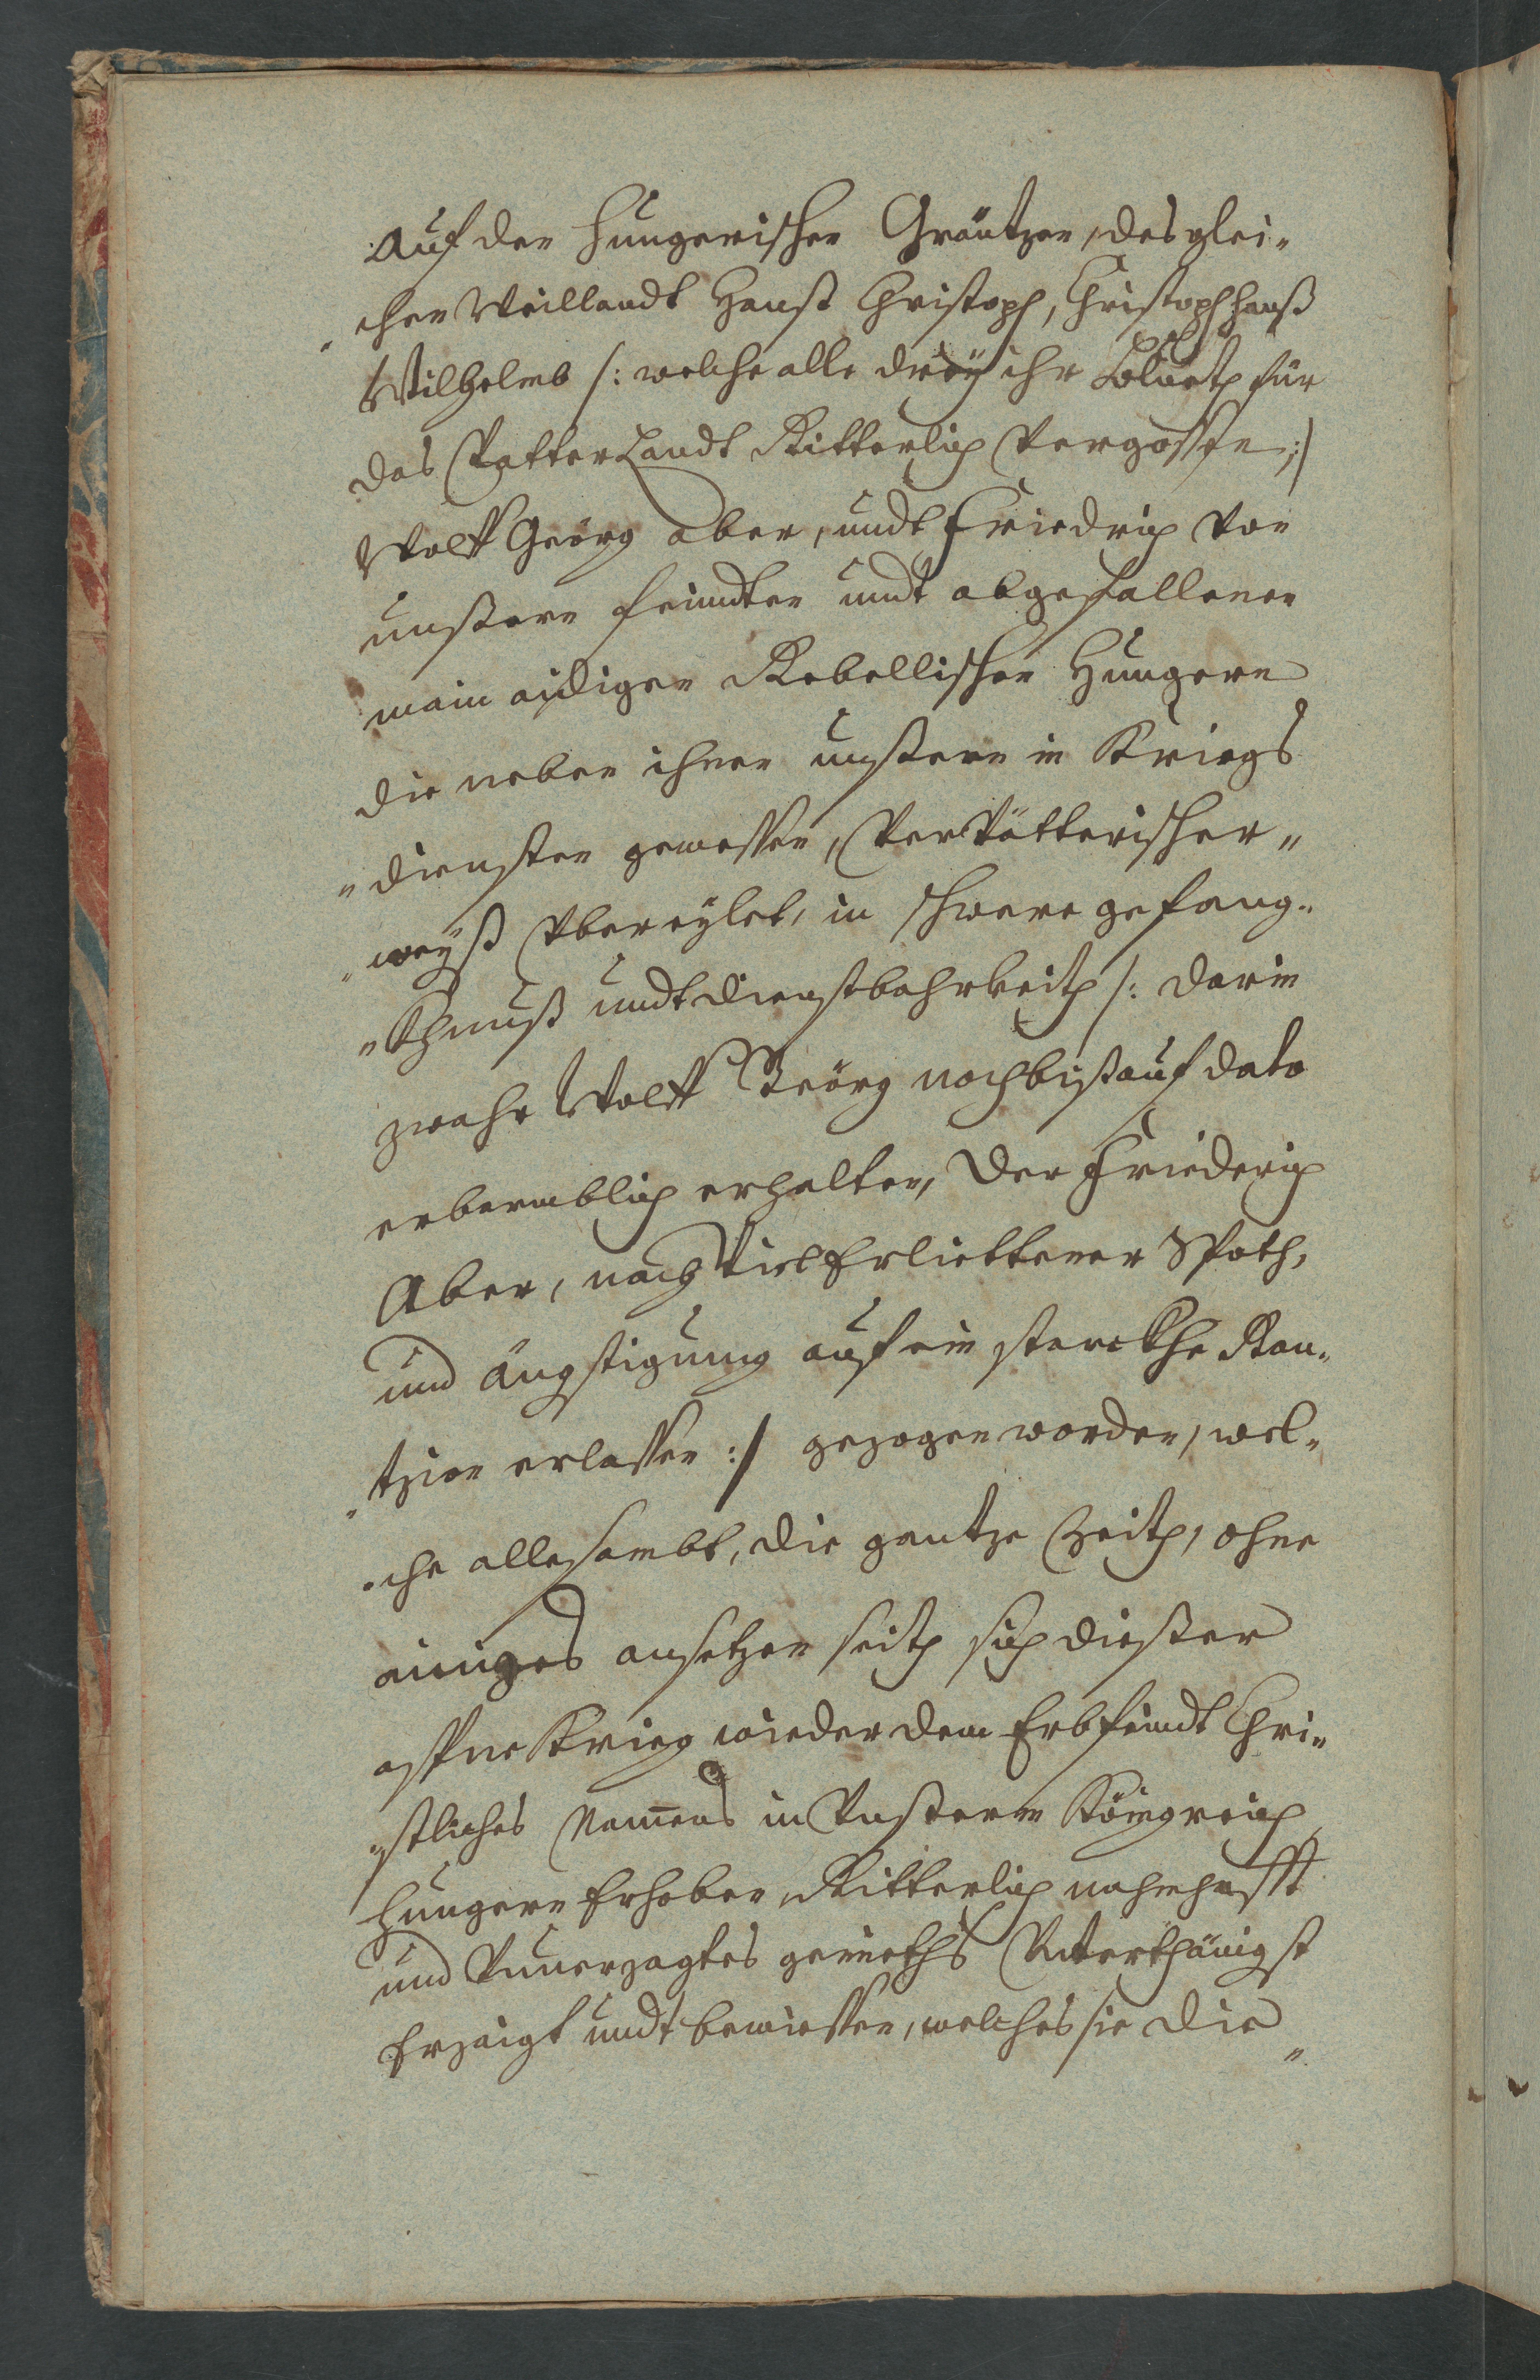 auf den Hungerischen Gräntzen, desglei„
„chen Weillandt Hanß Christoph, Christoph hanß
Wilhelmb /: welche alle dreÿ ihr BluetH für
das Vatterlandt Ritterlich Vergossen :/
Wolff Geörg aber, undt Friedrich von
unßern feindten undt abgefallenen
main aidigen Rebellischen Hungern
die neben ihnen unßern in Kriegs
„diensten gewessen, Verrätterischer„
„weyß Vbereylet, in schwere gefang„
„Khnuß undt dienstbahrkeith /: darin
zwahr Wolff Geörg noch bißauf dato
erbermblich erhalten, Der Friederich
Aber, nach Viel Erliettener Spoth,
und ängstigung auf ein starckhe Ran„
„tzion erlassen :/ gezogen worden, wel„
„che allesambt, die gantze Zeith, ohne
ainiges ansetzen seith sich dießer
offne Krieg wieder dem Erbfeindt Chri„
„stliches Namens in Vnßerm Königreich
Hungern Erhoben, Ritterlich mahnhafft
und Vnuerzagtes gemieths Vnterthänigst
Erzaigt undt bewiessen, welches sie die„